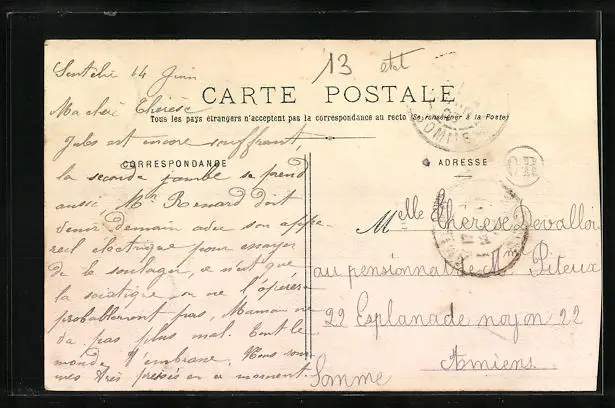 13 état
Sentelie 14 Juin
CARTE POSTALE
Tous les pays étrangers n'acceptent pas la correspondance au recto (Se renseigner à la Poste)
CORRESPONDANCE
ADRESSE
Ma chère Thérèse
Jules est encore souffrant,
la seconde jambe se prend
aussi Mr Renard doit
venir demain avec son appa-
reil électrique pour essayer
de le soulager, ce n'est que
la sciatique on ne l'opérera
probablement pas, Maman ne
va pas plus mal. Tout le
monde t'embrasse, Nous som-
mes très pressés en ce moment.
Melle Thérèse Devallois
au pensionnat Mme Piteux
22 Esplanade noyon 22
Amiens
Somme